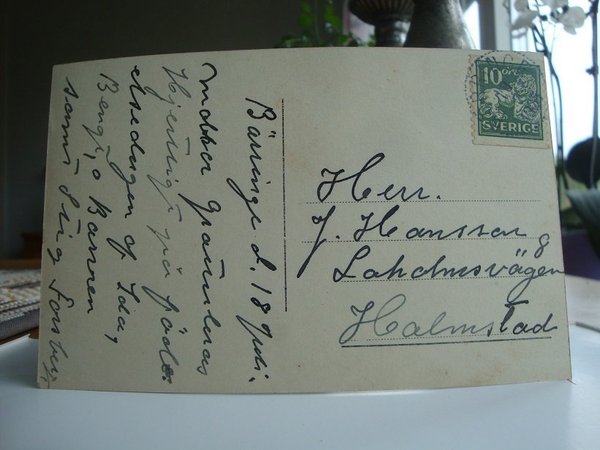 Bäringe d. 18 Juli.
Mottag Gratulera
Hjertligt på födel
sedagen af Ida,
Bengt, o Barnen
samt Stig
10 ÖRE
SVERIGE
Herr.
J. Hansson
Laholmsvägen 8
Halmstad